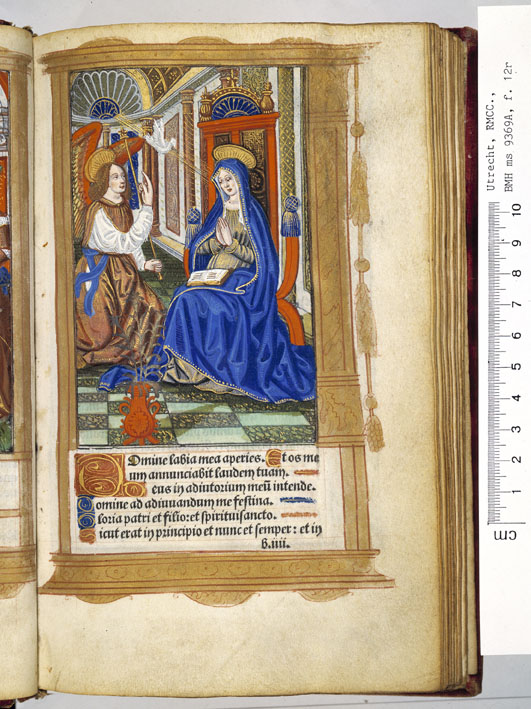 Domine labia mea aperies. Et os me
um annunciabit laudem tuam.
Deus in adiutorium meū intende.
Domine ad adiuuandum me festina.
Gloria patri et filio: et spirituisancto.
Sicut erat in principio et nunc et semper: et in
b.iiii.
Utrecht, RMCC.,
BMH ms 9369A, f. 12r
cm 1 2 3 4 5 6 7 8 9 10